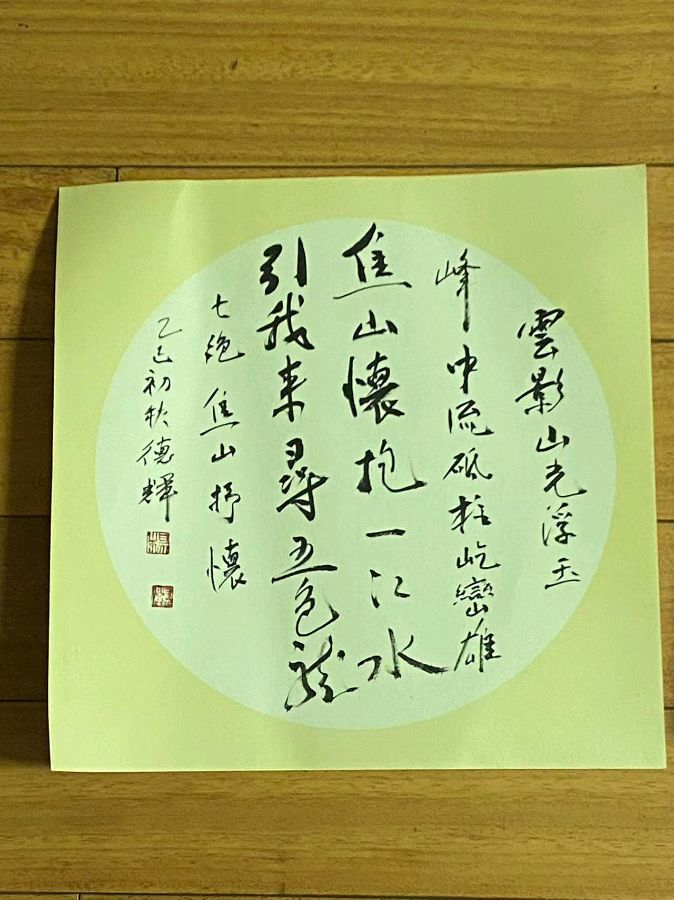 雲影山光浮玉
峰中流砥柱屹巒雄
焦山懷抱一江水
引我来尋五色龍
七絕焦山抒懷
乙巳初秋德輝